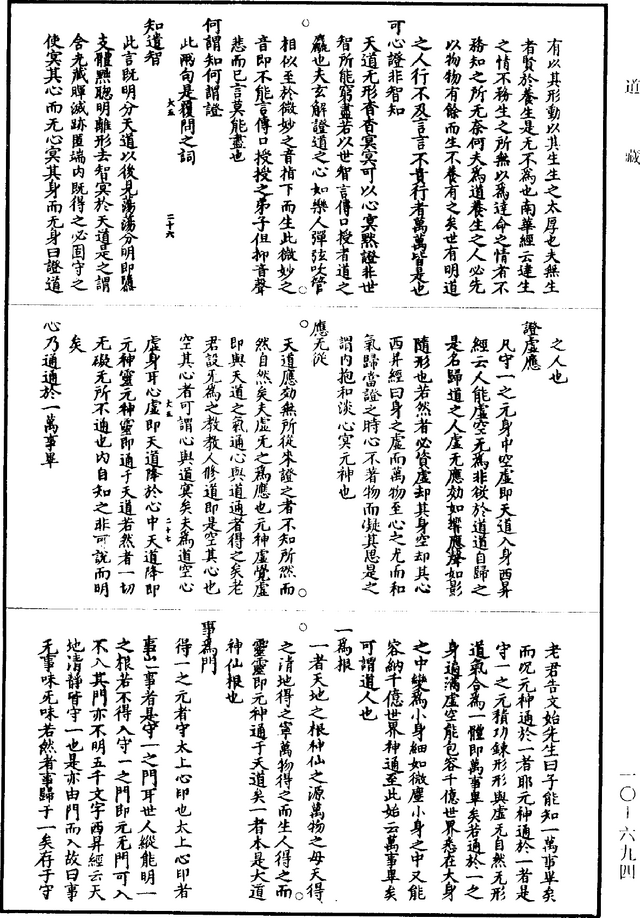 道藏
有以其形動以其生生之太厚也夫無生
者賢於養生是无不為也南華經云達生
之情不務生之所無以為達命之情者不
務知之所无奈何夫為道養生之人必先
以物物有餘而生不養有之矣世有明道
之人行不及言言不貴行者萬萬皆是也
可心證非智知
天道无形杳杳冥冥可以心冥默證非世
智所能窮盡若以世智言傳口授者道之
麤也夫玄解證道之心如樂人彈弦吹管
相似至於微妙之音指下而生此微妙之
音即不能言傳口授授之弟子但抑音聲
悲而已言莫能盡也
何謂知何謂證
此兩句是覆問之詞
大五
二十六
知遣智
此言既明分天道以後見蕩蕩分明即隳
支體黜聰明離形去智冥於天道是之謂
含光藏暉滅跡匿端内既得之必固守之
使冥其心而无心冥其身而无身曰證道
之人也
證虛應
凡守一之元身中空虛即天道入身西昇
經云人能虛空无為非欲於道道自歸之
是名歸道之人虛无應効如響應聲如影
隨形也若然者必資虛却其身空却其心
西昇經曰身之虛而萬物至心之无而和
氣歸當證之時心不著物而凝其思是之
謂内抱和淡心冥元神也
應无從
天道應効無所從來證之者不知所然而
然自然矣夫虛无之為應也元神虛覺虛
即與天道之氣通心與道通者得之矣老
君設无為之教教人修道即是空其心也
空其心者可謂心與道冥矣夫為道空心
大五
二十七
虛身耳心虛即天道降於心中天道降即
元神靈元神靈即通于天道若然者一切
无礙无所不通也内自知之非可說而明
矣
心乃通通於一萬事畢
老君告文始先生曰子能知一萬事畢矣
而况元神通於一者耶元神通於一者是
守一之元積功鍊形形與虛无自然无形
道氣合為一體即萬事畢矣若通於一之
身遍滿虛空能包容千億世界悉在大身
之中變為小身細如微塵小身之中又能
容納千億世界神通至此始云萬事畢矣
可謂道人也
一為根
一者天地之根神仙之源萬物之母天得
之清地得之寧萬物得之而生人得之而
靈靈即元神通于天道矣一者本是大道
神仙根也
事為門
得一之元者守太上心印也太上心印者
事出二事者是守一之門耳世人縱能明一
之根若不得入守一之門即元无門可入
不入其門亦不明五千文字西昇經云天
地清靜皆守一也是亦由門而入故曰事
无事味无味若然者事歸于一矣存于守
一〇—六九四